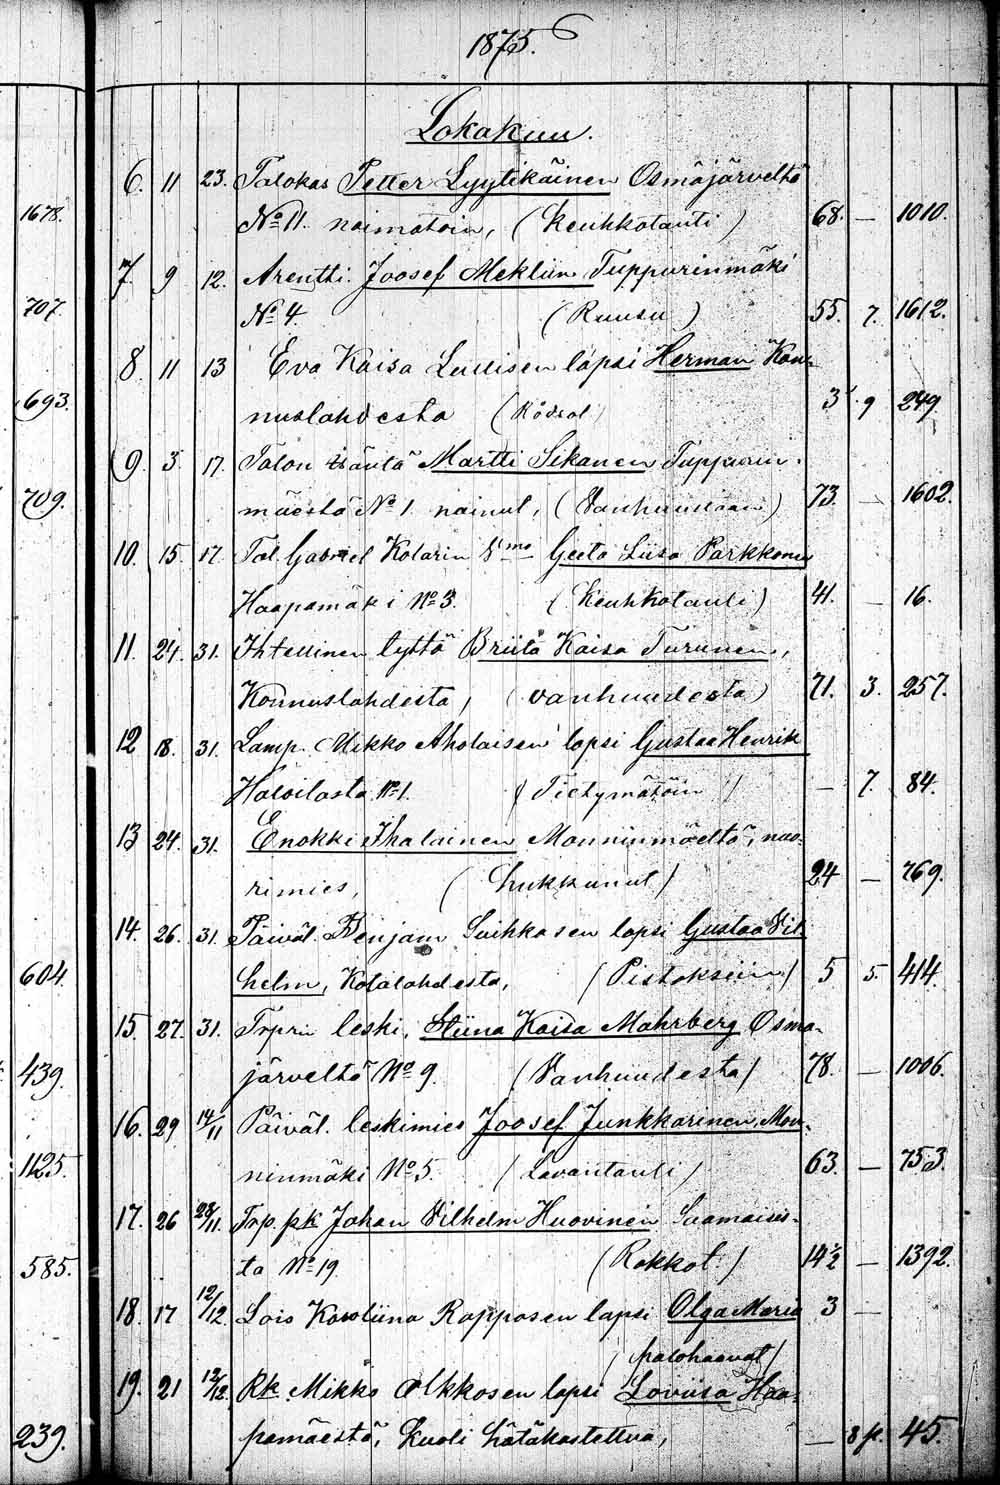 1875.
Lokakuu.
6. 11 23. Talokas Petter Lyytikäinen Osmäjärveltä
1678. No 11. naimatoin, (Keuhkotauti) 68. — 1010.
7. 9 12. Arentti. Joosef Meklin Tuppurinmäki
707. No 4. (Ruusu) 55. 7. 1612.
8 11 13 Eva Kaisa Lullisen lapsi Herman Kon-
693. nuslahdesta 3 9 249
9. 3. 17. Talon isäntä Martti Sikanen Tuppurin-
709. mäestä No 1. nainut, (Vanhuudesta) 73. — 1602.
10. 15. 17. Tal. Gabriel Kotarin Vmo Geeta Liisa Parkkonen
Haapamäki No 3. (Keuhkotauti) 41. — 16.
11. 24. 31. Ihtellinen tyttö Briita Kaisa Turunen,
Konnuslahdesta, (vanhuudesta) 71. 3. 257.
12 18. 31. Lamp. Mikko Aholaisen lapsi Gustaa Henrik
No 1. (Tietymätöin) — 7. 84.
13 24. 31. Enokki Ihalainen Monninmäeltä, nuo-
rimies, (hukkunut) 24 — 769.
14. 26. 31. Päiväl. Benjam Suihkosen lapsi Gustaa Vil-
604. helm, Kotalahdesta, (Pistoksiin) 5 5. 414.
15. 27. 31. Trpri leski, Stiina Kaisa Mahrberg Osma-
439. järveltä No 9. (Vanhuudesta) 78. — 1006.
16. 29 14/11 Päiväl. leskimies Joosef Junkkarinen, Mon-
1125. ninmäki No 5. (Lavantauti) 63. — 753.
17. 26 28/11. Trp. pk Johan Vilhelm Huovinen Saamaises-
585. ta No 19. (Rokkot) 14½ — 1392.
18. 17 12/12. Lois Karoliina Rapposen lapsi Olga Maria 3 —
(palohaavat)
19. 21 12/12. Rk. Mikko Olkkosen lapsi Loviisa Haa-
239. pamäestä, kuoli hätäkastettua, — 8 p. 45.